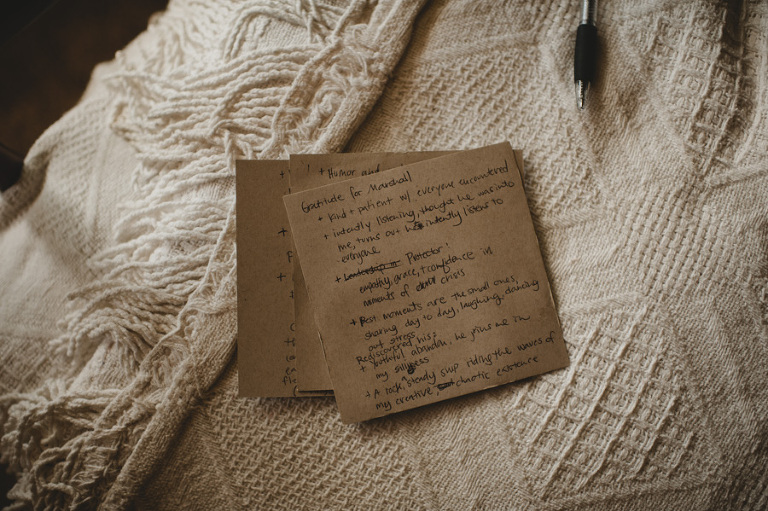 + Humor and
Gratitude for Marshall
+ kind + patient w/ everyone encountered
+ intently listening, thought he was into
me, turns out he intently listens to
everyone
+ Leadership in Protector!
empathy, grace, + confidence in
moments of crisis
+ Best moments are the small ones,
sharing day to day, laughing, dancing
out stress
Rediscovered his
+ youthful abandon. he joins me in
my silliness
+ A rock "steady ship riding the waves of
my creative, chaotic existence